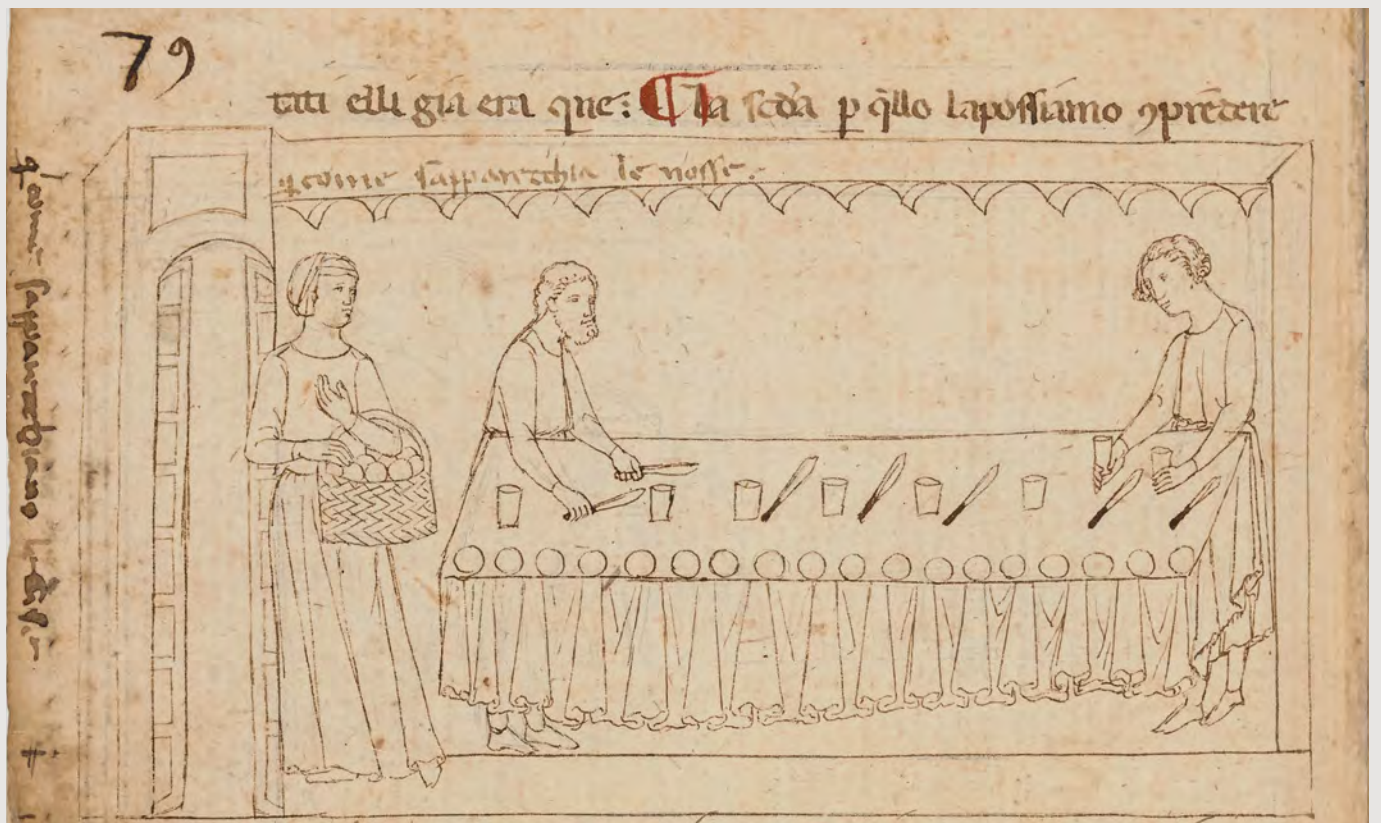 79
tati elli gia era que: ¶ La scd'a p q̄llo lapossiamo ꝯprēdere
come sapparecchia le nosse.
come sapparecchiano le